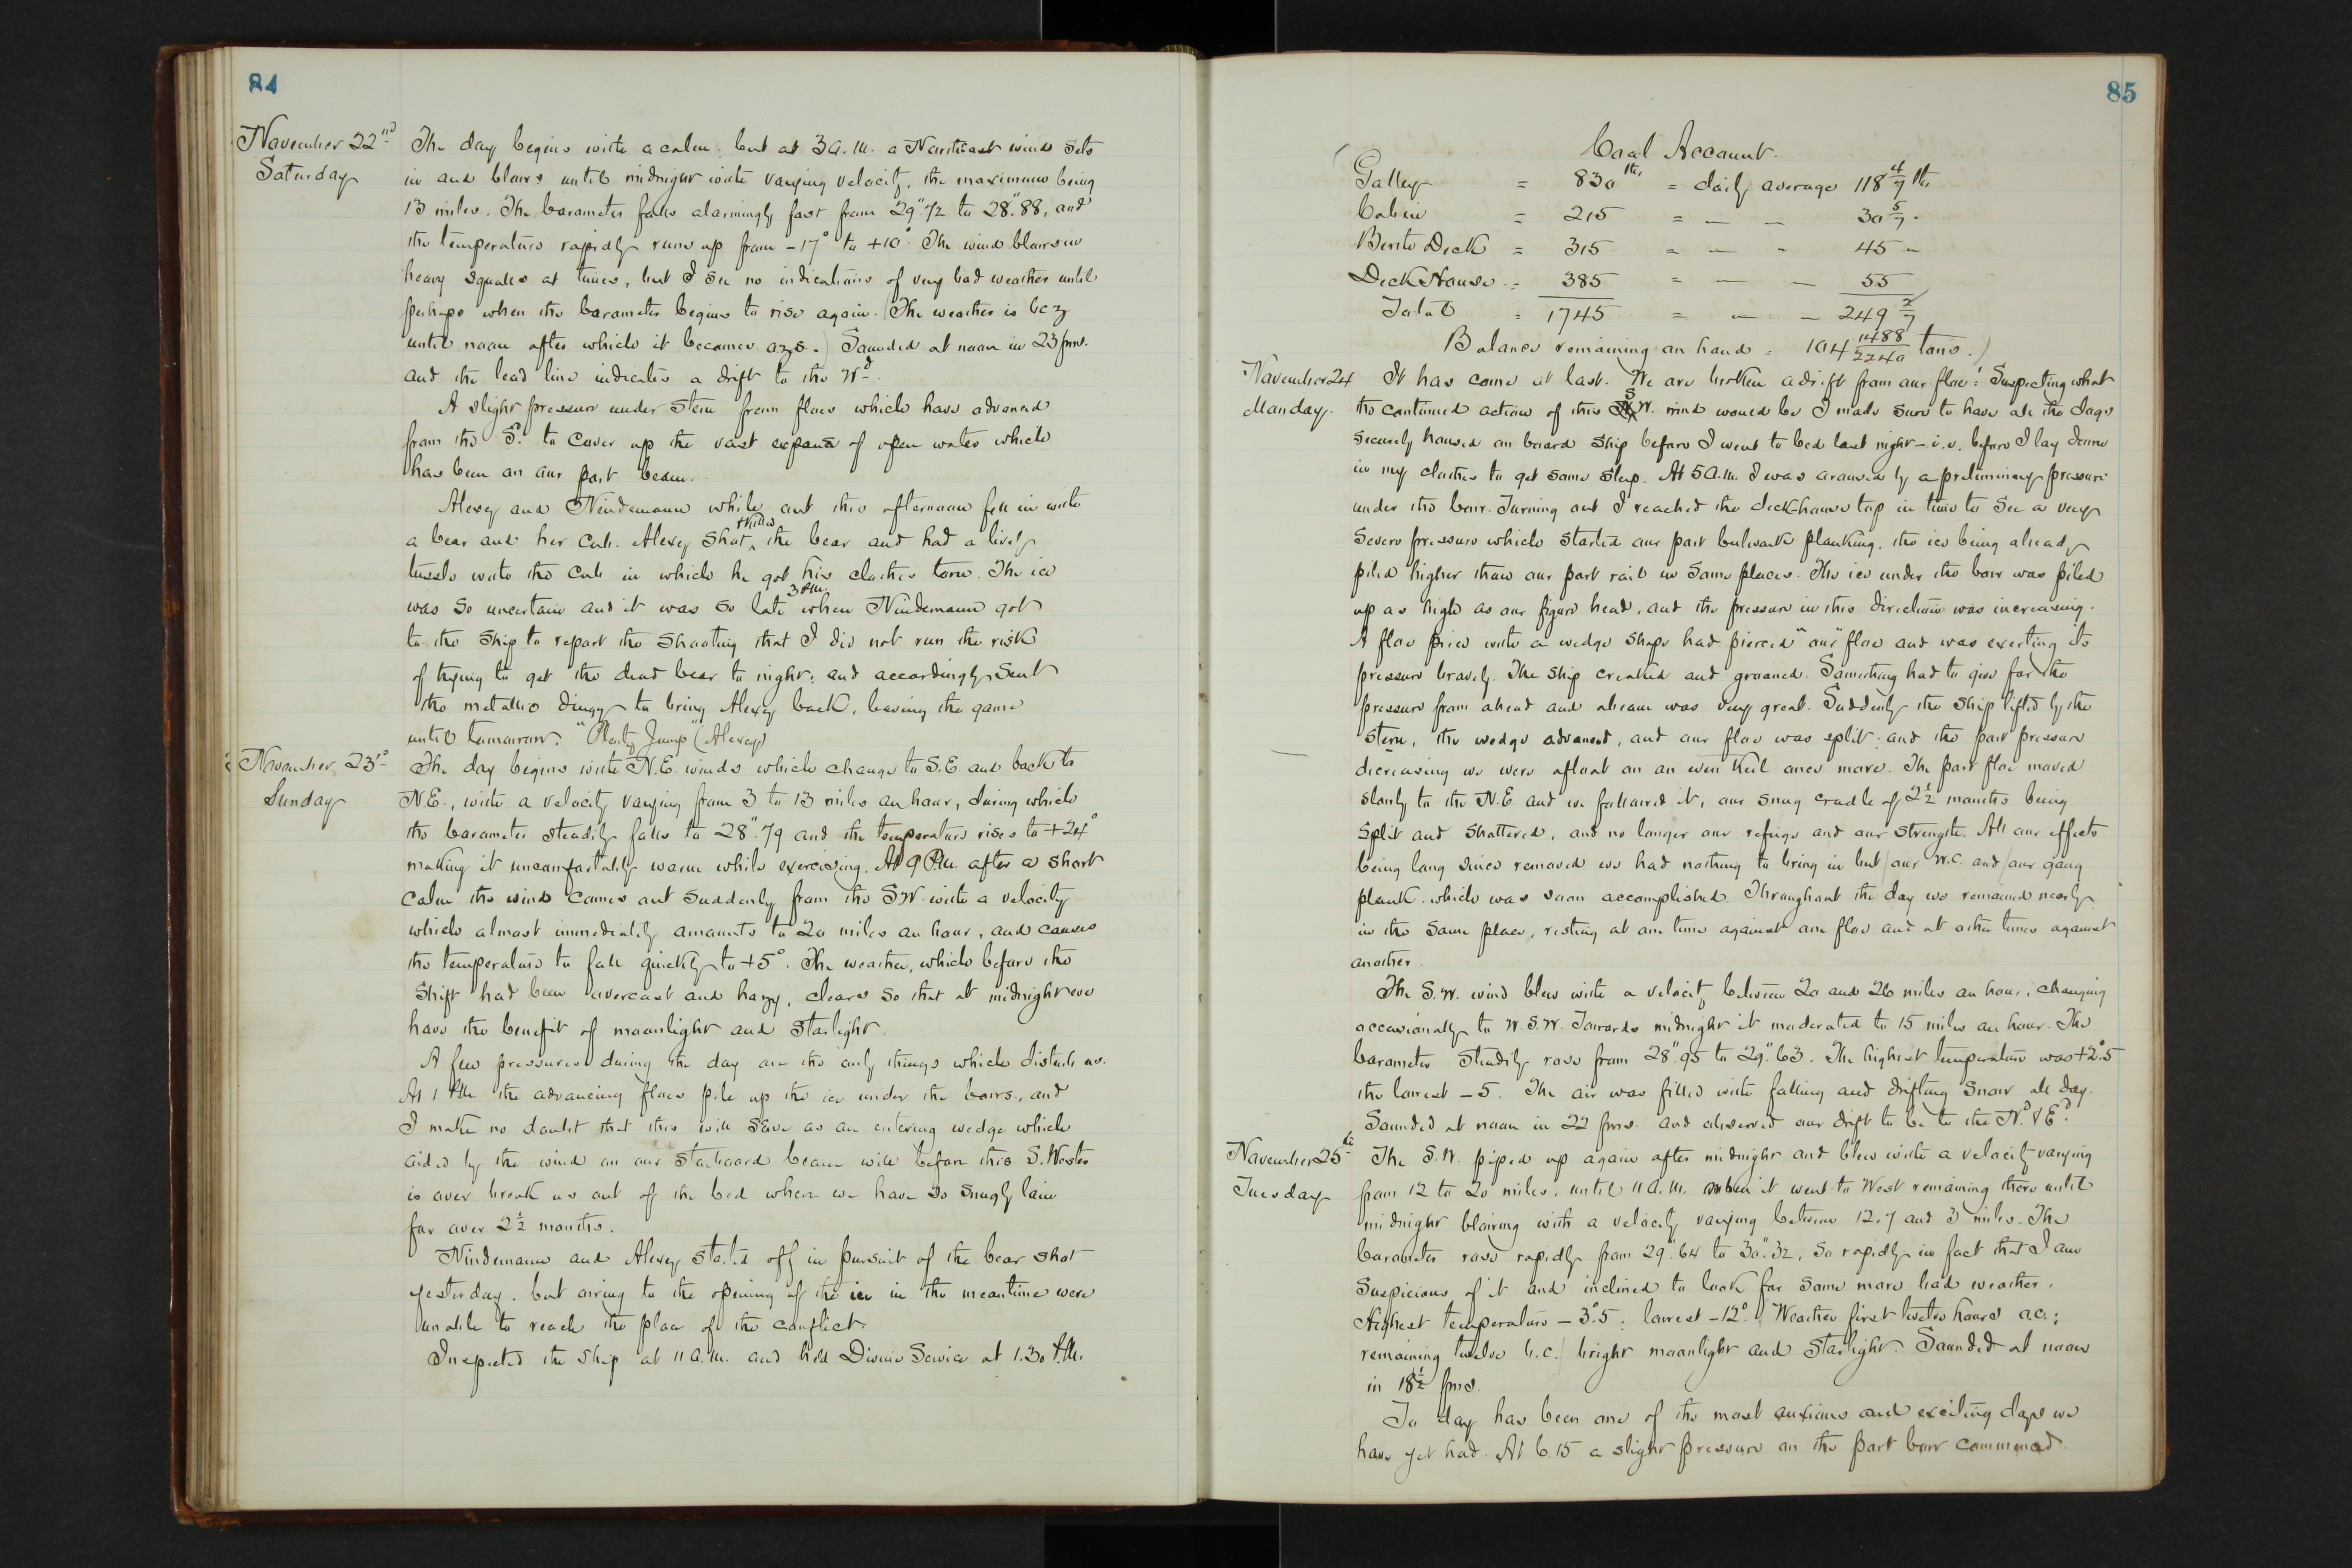 84
November 22nd
Saturday
The day begins with a calm, but at 3 a.m. a Northeast wind sets
in and blows until midnight with varying velocity, the maximum being
13 miles. The barometer falls alarmingly fast from 29".72 to 28".88, and
the temperature rapidly runs up from -17° to +10°. The wind blows in
heavy squalls at times, but I see no indications of very bad weather until
perhaps when the barometer begins to rise again. (The weather is bcz
until noon after which it becomes ozs.) Sounded at noon in 23 fms.
and the lead line indicates a drift to the Wd.
A slight pressure under stern from floes which have advanced
from the Sd. to cover up the vast expanse of open water which
has been on our port beam.
Alexey and Nindemann while out this afternoon fell in with
a bear and her cub. Alexey shot & killed the bear and had a lively
tussle with the cub in which he got his clothes torn. The ice
was so uncertain and it was so late 3 P.M. when Nindemann got
to the ship to report the shooting that I did not run the risk
of trying to get the dead bear to night, and accordingly sent
the metallic dingy to bring Alexey back, leaving the game
until tomorrow. "Plenty Jump" (Alexey)
November 23d
Sunday
The day begins with N.E. winds which change to S.E. and back to
N.E., with a velocity varying from 3 to 13 miles an hour, during which
the barometer steadily falls to 28".79 and the temperature rises to +24°
making it uncomfortably warm while exercising. At 9 P.M. after a short
calm the wind comes out suddenly from the S.W. with a velocity
which almost immediately amounts to 20 miles an hour, and causes
the temperature to fall quickly to +5°. The weather, which before the
shift had been overcast and hazy, clears so that at midnight we
have the benefit of moonlight and starlight.
A few pressures during the day are the only things which disturb us.
At 1 P.M. the advancing floes pile up the ice under the bows, and
I make no doubt that this will serve as an entering wedge which
aided by the wind on our starboard beam will before this S. Wester
is over break us out of the bed where we have so snugly lain
for over 2½ months.
Nindemann and Alexey started off in pursuit of the bear shot
yesterday, but owing to the opening of the ice in the meantime were
unable to reach the place of the conflict.
Inspected the ship at 11 a.m. and held Divine Service at 1.30 P.M.
85
Coal Account.
(Galley = 830 lbs = daily average 118 4/7 lbs
Cabin = 215 = — - 30 5/7 "
Berth Deck = 315 = — - 45 "
Deck House = 385 = — - 55
Total = 1745 = — - 249 2/7
Balance remaining on hand = 104 1488/2240 tons.)
November 24
Monday.
It has come at last. We are broken adrift from our floe! Suspecting what
the continued action of this S.W. wind would be I made sure to have all the dogs
securely housed on board ship before I went to bed last night – i.e. before I lay down
in my clothes to get some sleep. At 5 a.m. I was aroused by a preliminary pressure
under the bow. Turning out I reached the deck-house top in time to see a very
severe pressure which started our port bulwark planking, the ice being already
piled higher than our port rail in some places. The ice under the bow was piled
up as high as our figure head, and the pressure in this direction was increasing.
A floe piece with a wedge shape had pierced "our" floe and was exerting its
pressure bravely. The ship creaked and groaned. Something had to give for the
pressure from ahead and abeam was very great. Suddenly the ship lifted by the
stern, the wedge advanced, and our floe was split; and the port pressure
decreasing we were afloat on an even keel once more. The port floe moved
slowly to the N.E. and we followed it, our snug cradle of 2½ months being
split and shattered, and no longer our refuge and our strength. All our effects
being long since removed we had nothing to bring in but (our W.C. and) our gang
plank, which was soon accomplished. Throughout the day we remained nearly
in the same place, resting at one time against one floe and at other times against
another.
The S.W. wind blew with a velocity between 20 and 26 miles an hour, changing
occasionally to W.S.W. Towards midnight it moderated to 15 miles an hour. The
barometer steadily rose from 28".95 to 29".63. The highest temperature was +2°.5
the lowest -5. The air was filled with falling and drifting snow all day.
Sounded at noon in 22 fms. and observed our drift to be to the Nd. & Ed.
November 25th
Tuesday
The S.W. piped up again after midnight and blew with a velocity varying
from 12 to 20 miles, until 11 a.m. when it went to West remaining there until
midnight blowing with a velocity varying between 12, 7 and 3 miles. The
barometer rose rapidly from 29".64 to 30".32, so rapidly in fact that I am
suspicious of it and inclined to look for some more bad weather.
Highest temperature -3°.5; lowest -12°. (Weather first twelve hours o.c.;
remaining twelve b.c.) bright moonlight and starlight. Sounded at noon
in 18½ fms.
To day has been one of the most anxious and exciting days we
have yet had. At 6.15 a slight pressure on the port bow commenced.